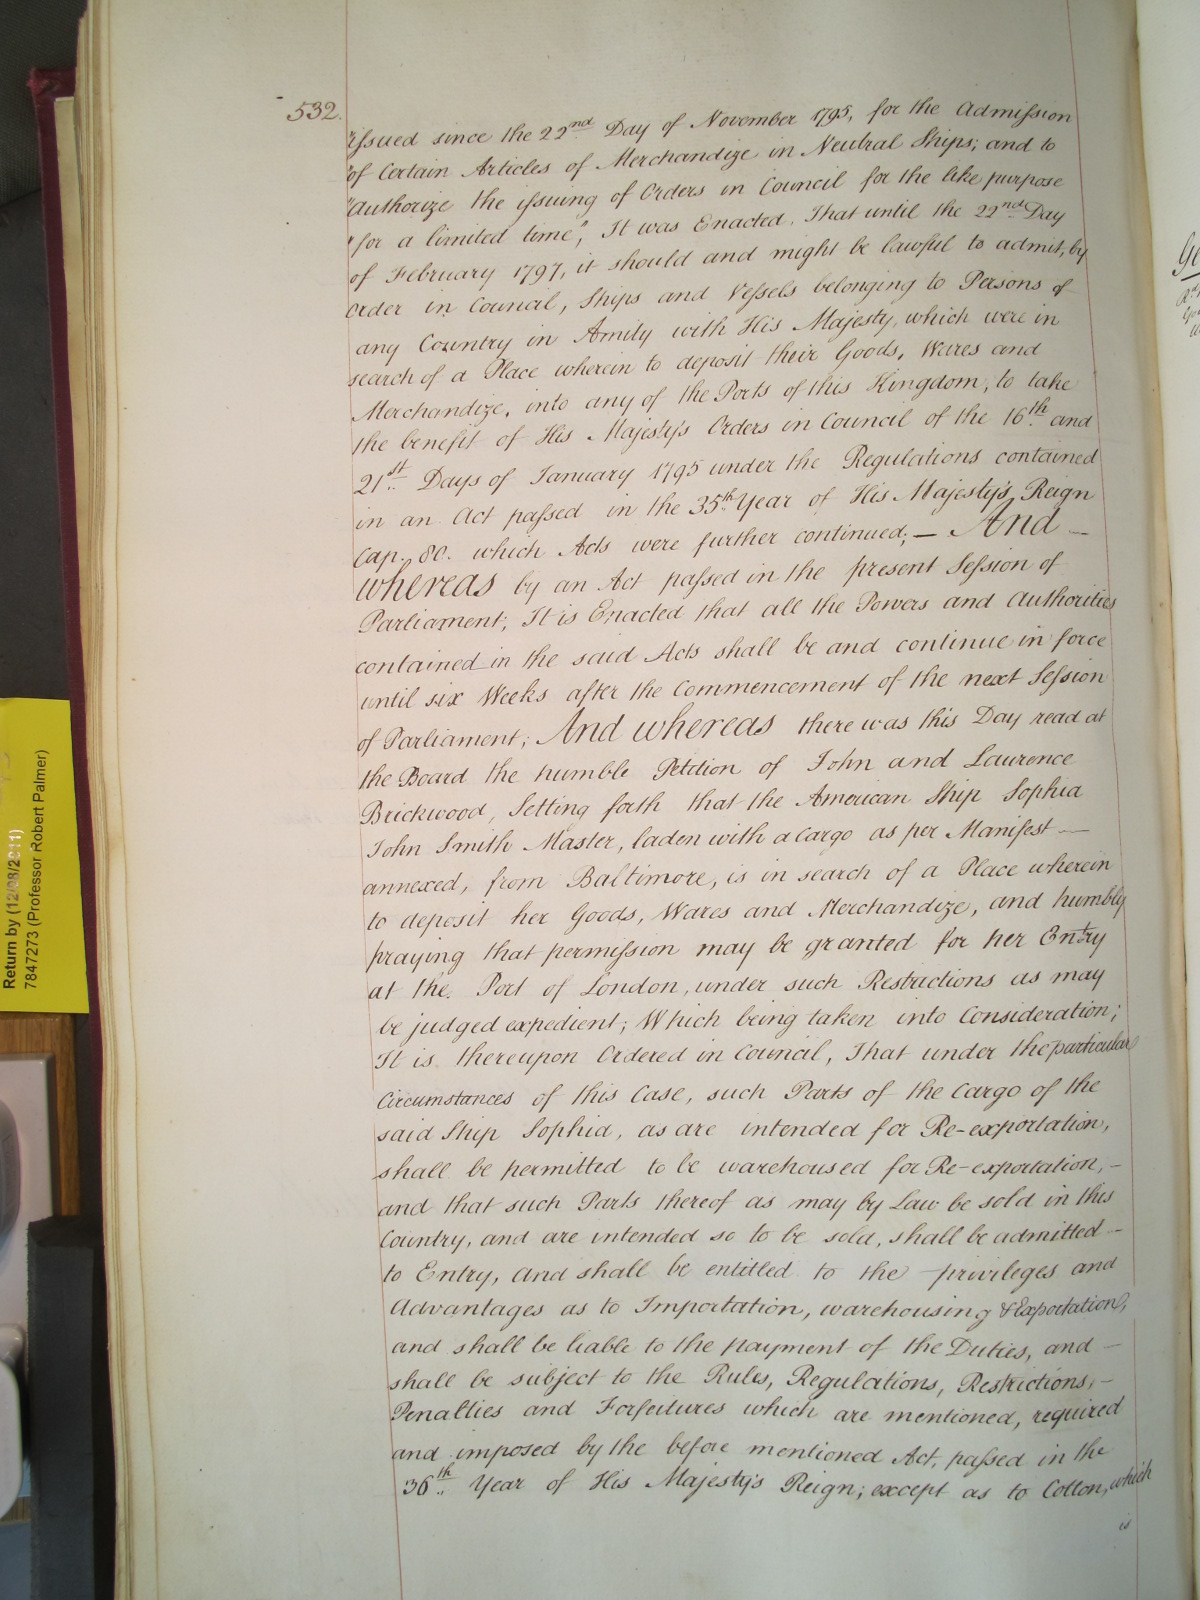 532.
"issued since the 22nd Day of November 1795, for the Admission
"of Certain Articles of Merchandize in Neutral Ships; and to
"Authorize the issuing of Orders in Council for the like purpose
"for a limited time", It was Enacted, That until the 22nd Day
of February 1797, it should and might be lawful to admit, by
Order in Council, Ships and Vessels belonging to Persons of
any Country in Amity with His Majesty, which were in
search of a Place wherein to deposit their Goods, Wares and
Merchandize, into any of the Ports of this Kingdom, to take
the benefit of His Majesty's Orders in Council of the 16th and
21st Days of January 1795 under the Regulations contained
in an Act passed in the 35th Year of His Majesty's Reign
Cap. 80. which Acts were further continued; — And —
whereas by an Act passed in the present Session of
Parliament, It is Enacted that all the Powers and Authorities
contained in the said Acts shall be and continue in force
until six Weeks after the Commencement of the next Session
of Parliament; And whereas there was this Day read at
the Board the humble Petition of John and Laurence
Brickwood, Setting forth that the American Ship Sophia
John Smith Master, laden with a Cargo as per Manifest —
annexed, from Baltimore, is in search of a Place wherein
to deposit her Goods, Wares and Merchandize, and humbly
praying that permission may be granted for her Entry
at the Port of London, under such Restrictions as may
be judged expedient; Which being taken into Consideration;
It is thereupon Ordered in Council, That under the particular
Circumstances of this Case, such Parts of the Cargo of the
said Ship Sophia, as are intended for Re-exportation,
shall be permitted to be warehoused for Re-exportation, –
and that such Parts thereof as may by Law be sold in this
Country, and are intended so to be sold, shall be admitted –
to Entry, and shall be entitled to the privileges and
Advantages as to Importation, warehousing & Exportation,
and shall be liable to the payment of the Duties, and –
shall be subject to the Rules, Regulations, Restrictions, –
Penalties and Forfeitures which are mentioned, required
and imposed by the before mentioned Act, passed in the
36th Year of His Majesty's Reign; except as to Cotton, which
is
Return by (12/08/2011)
7847273 (Professor Robert Palmer)